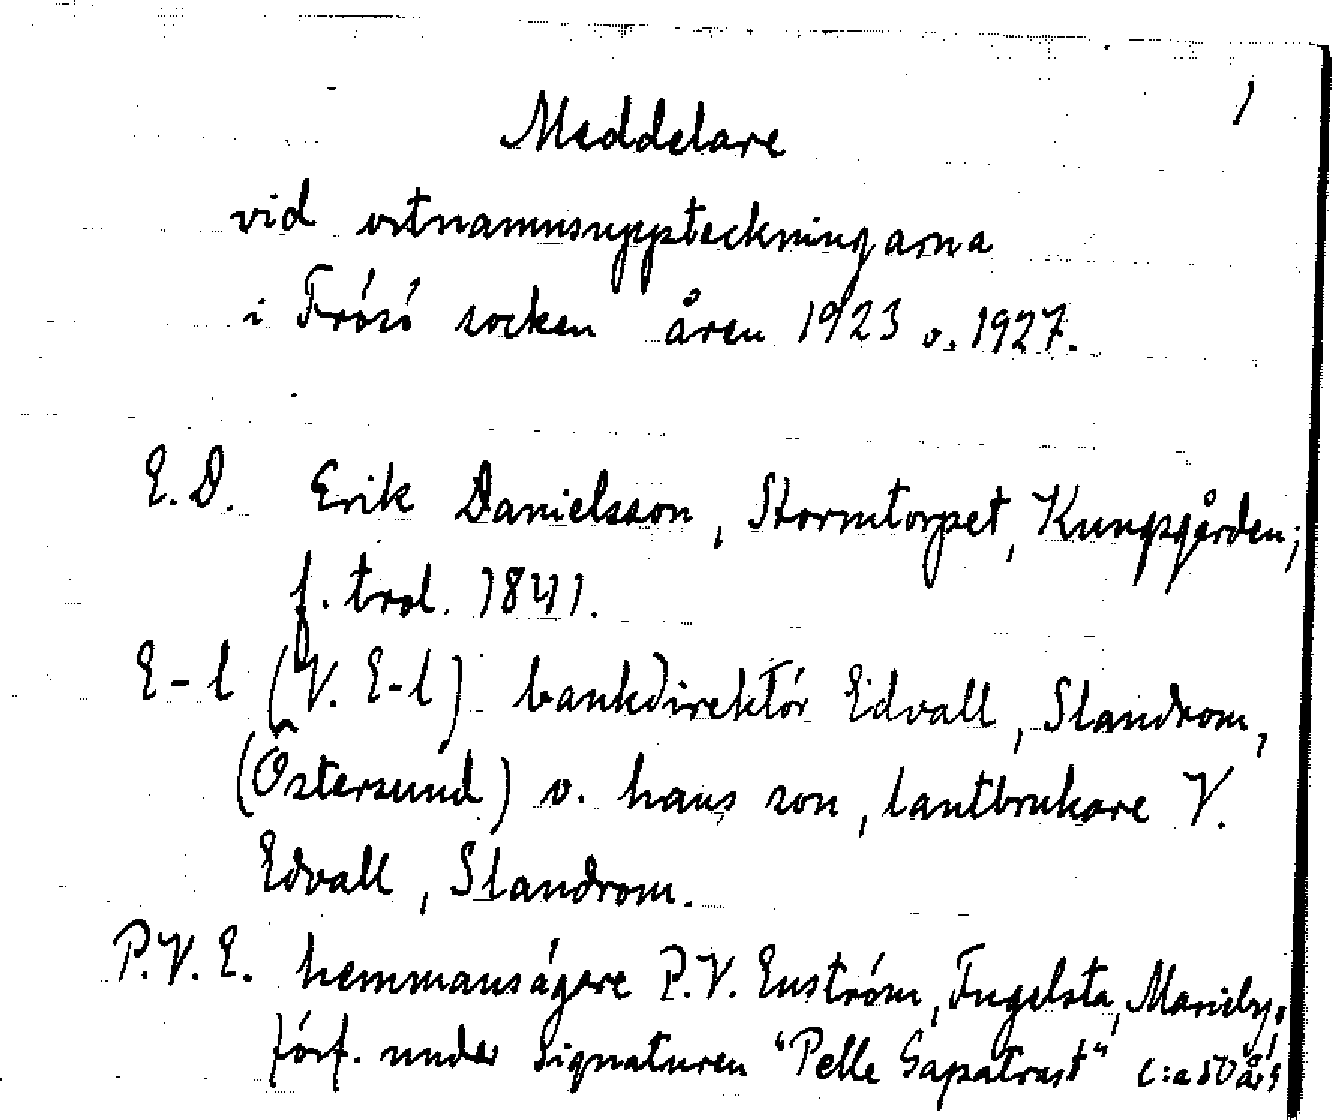 1
Meddelare
vid ortnamnsuppteckningarna
i Frösö socken åren 1923 o. 1927.
E.D. Erik Danielsson, Stormtorpet, Kungsgården;
f. trol. 1841.
E-l (V. E-l) bankdirektör Edvall, Slandrom,
(Östersund) o. hans son, lantbrukare V.
Edvall, Slandrom.
P.V.E. hemmansägare P.V. Enström, Fugelsta, Marieby,
förf. under signaturen "Pelle Sapatrast" c:a 50 års